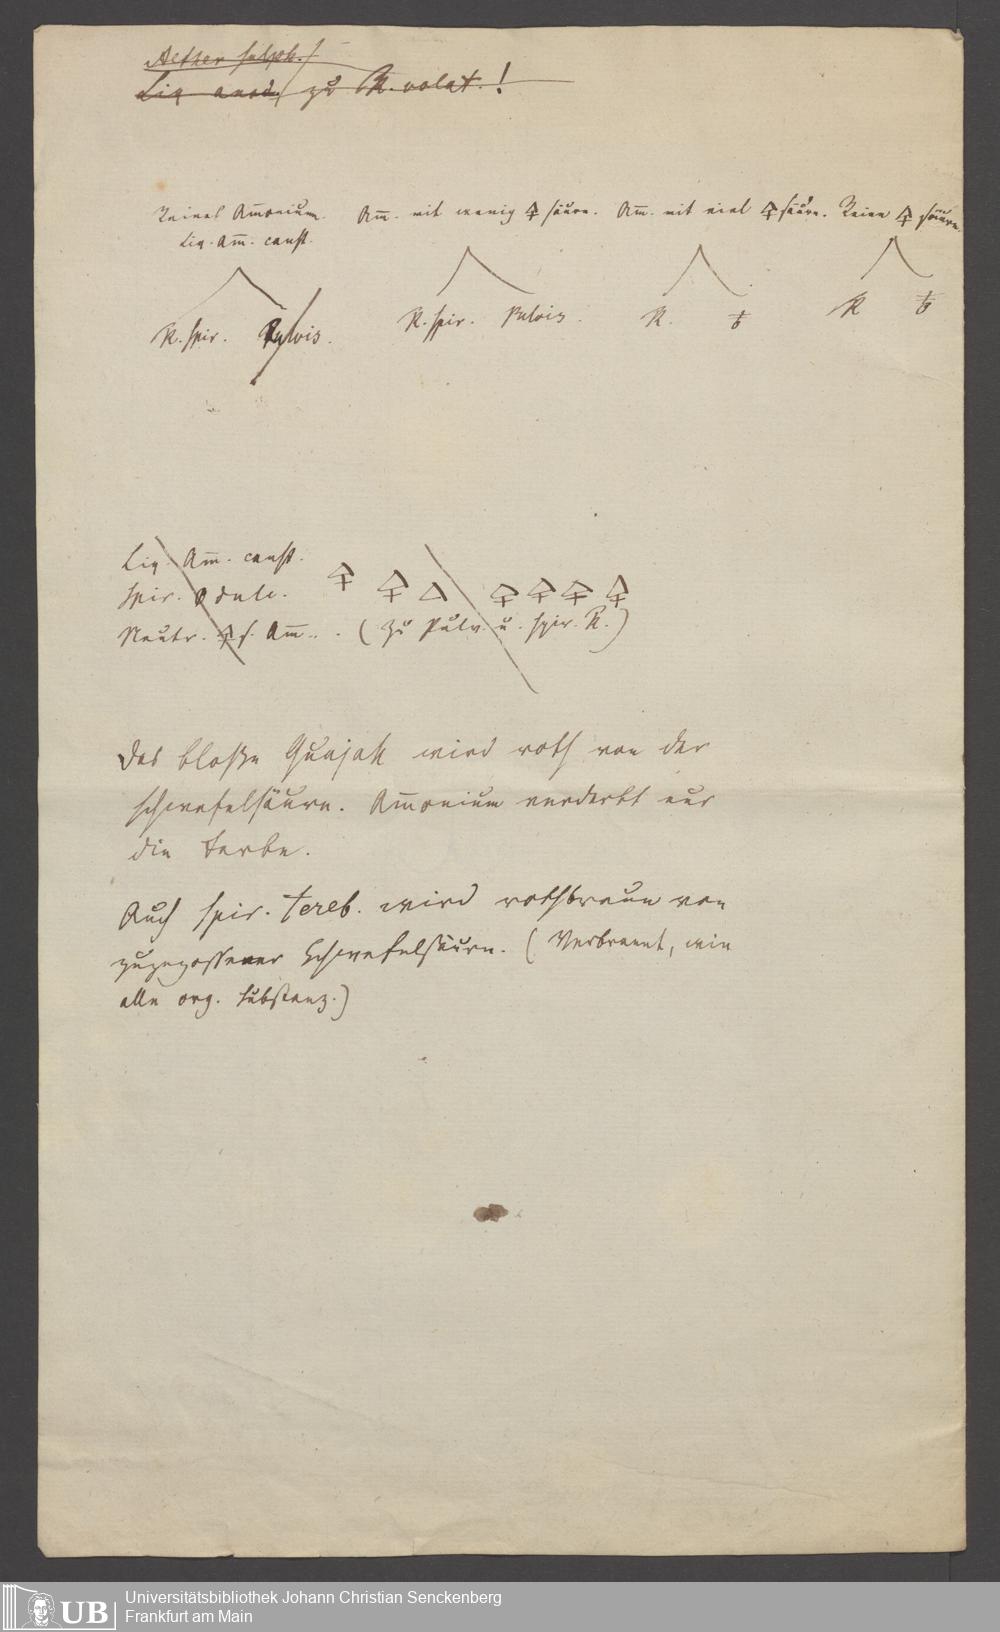 Aether sulph.
Liq anod. zu R. volat.!
Reines Amonium. Am. mit wenig 🜍 säure. Am. mit viel 🜍 säure. Reine 🜍 säure.
Liq. Am. caust.
R. spir. Pulvis. R. spir. Pulvis. R. R
Liq. Am. caust.
Spir. dulc. 🜍 🜍 🜂 🜍 🜍 🜍 🜍
Neutr. 🜍 s. Am. (zu Pulv. u. spir. R.)
Das bloße Guajak wird roth von der
Schwefelsäure. Amonium verderbt nur
die Farbe.
Auch spir. tereb. wird rothbraun von
zugegossener Schwefelsäure. (Verbrennt, wie
alle org. Substanz.)
UB
Universitätsbibliothek Johann Christian Senckenberg
Frankfurt am Main